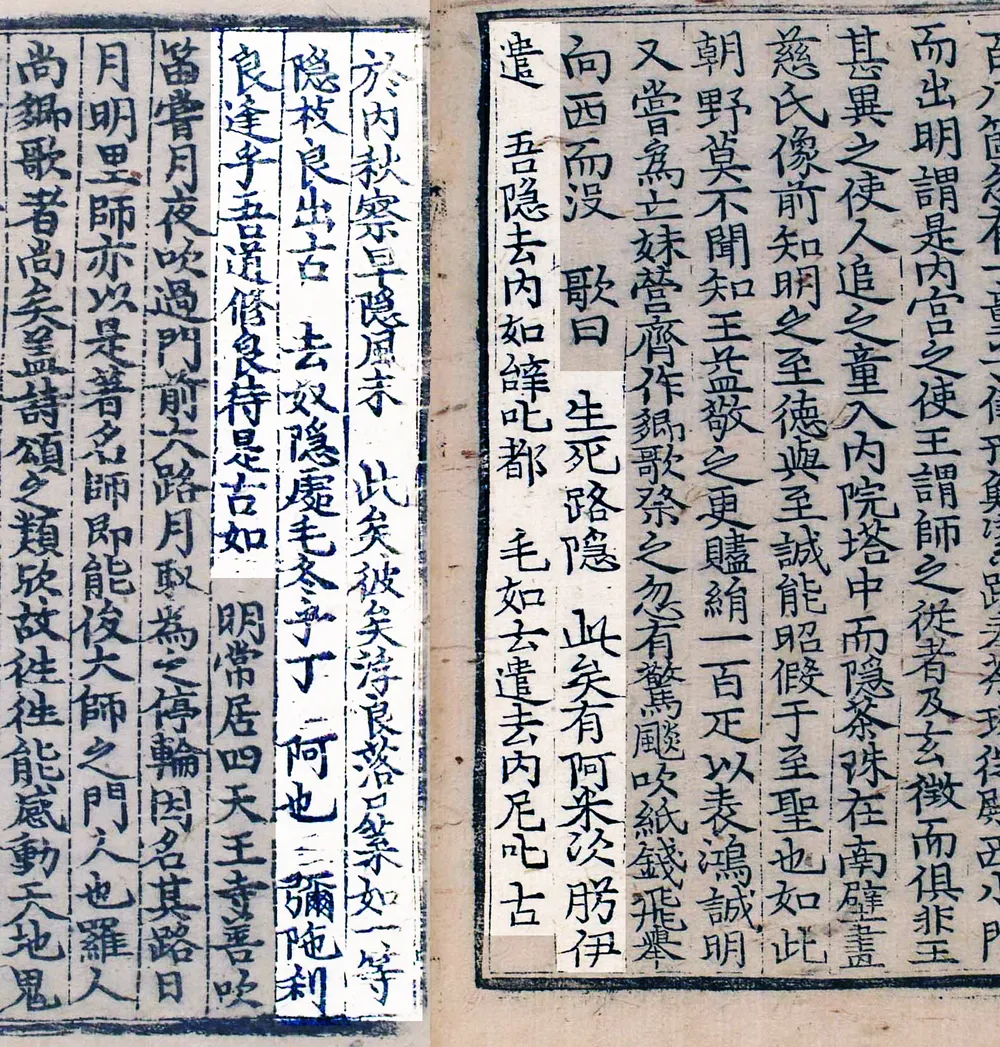 而出明謂是内宫之使王謂師之從者及玄徵而俱非王
甚異之使人追之童入内院塔中而隱茶珠在南壁畫
慈氏像前知明之至德與至誠能昭假于至聖也如此
朝野莫不聞知王益敬之更贐絹一百疋以表鴻誠明
又嘗爲亡妹營齋作鄉歌祭之忽有驚颷吹紙錢飛舉
向西而没 歌曰 生死路隠 此矣有阿米次肹伊
遣 吾隠去内如辝叱都 毛如云遣去内尼叱古
於内秋察早隠風未 此矣彼矣浮良落尸葉如一等
隠枝良出古 去奴隠處毛冬乎丁 阿也 彌陁刹
良逢乎吾道修良待是古如 明常居四天王寺善吹
笛嘗月夜吹過門前大路月馭爲之停輪因名其路曰
月明里師亦以是著名師即能俊大師之門人也羅人
尚鄉歌者尚矣盖詩頌之類歟故往往能感動天地鬼